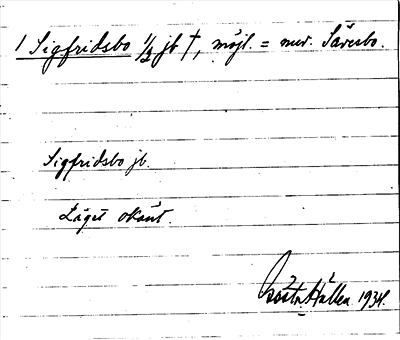 1 Sigfridsbo 1/2 jb †, möjl. = nuv. Säresbo.
Sigfridsbo jb.
Läget okänt.
Gösta Hallen 1934.